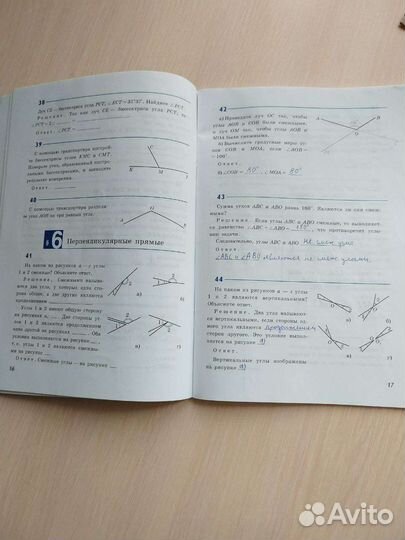 38
Луч CE — биссектриса угла PCT, ∠ECT = 37°37'. Найдите ∠PCT.
Решение. Так как луч CE — биссектриса угла PCT, то
∠PCT = 2
Ответ. ∠PCT =
39
С помощью транспортира построй-
те биссектрисы углов KMC и CMT.
Измерьте угол, образованный постро-
енными биссектрисами, и запишите
результат измерения.
C
K
M
T
40
С помощью транспортира раздели-
те угол AOB на три равных угла.
A
B
§ 6
Перпендикулярные прямые
41
На каком из рисунков а – г углы
1 и 2 смежные? Объясните ответ.
Решение. Смежными называ-
ются два угла, у которых одна сто-
рона общая, а две другие являются
продолжениями
Углы 1 и 2 имеют общую сторону
на рисунках
Две стороны уг-
лов 1 и 2 являются продолжениями
одна другой на рисунках
Оба
условия выполняются на рисунке
т. е. углы 1 и 2 являются смежны-
ми на рисунке
Ответ. Смежные углы — на рисунке
а)
б)
в)
г)
16
42
а) Проведите луч OC так, чтобы
углы AOB и COB были смежными,
и луч OM так, чтобы углы AOB и
MOA были смежными.
б) Вычислите градусные меры уг-
лов COB и MOA, если ∠AOB =
= 100°.
Ответ.
б) ∠COB = 80°, ∠MOA = 80°
A
B
O
43
Сумма углов ABC и ABO равна 160°. Являются ли они смеж-
ными?
Решение. Если углы ABC и ABO смежные, то выполняет-
ся равенство ∠ABC + ∠ABO = 180°, что противоречит усло-
вию задачи.
Следовательно, углы ABC и ABO
Ответ.
∠ABC и ∠ABO
44
На каком из рисунков а – г углы
1 и 2 являются вертикальными?
Объясните ответ.
Решение. Два угла называют-
ся вертикальными, если стороны од-
ного угла являются продолжениями
сторон другого. Это условие выпол-
няется на рисунке
Ответ.
Вертикальные углы изображены
на рисунке
а)
б)
в)
г)
17
Avito